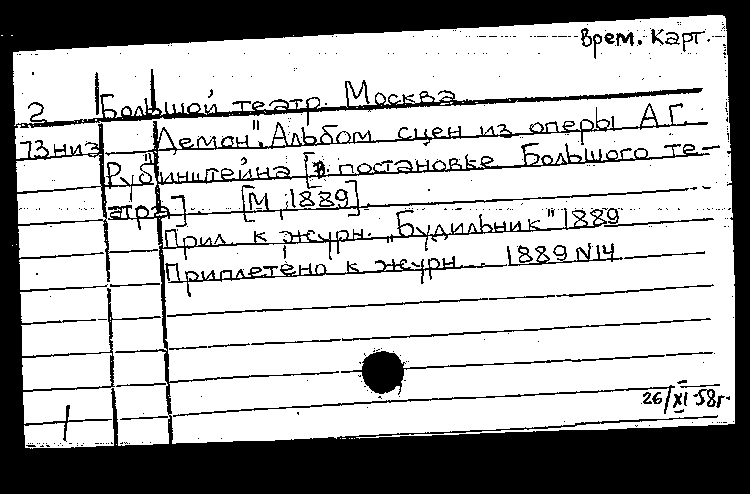 Врем. Карт.
2 Большой театр. Москва
73 низ „Демон". Альбом сцен из оперы А.Г.
Рубинштейна [в постановке Большого те-
атра]. [М, 1889].
Прил. к журн. „Будильник" 1889
Приплетено к журн. . 1889 N14
26/XI 58г